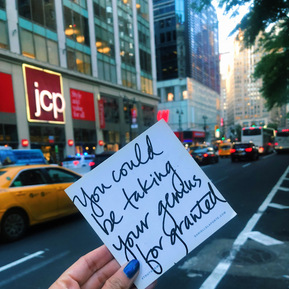 jcp
You could
be taking
your genius
for granted